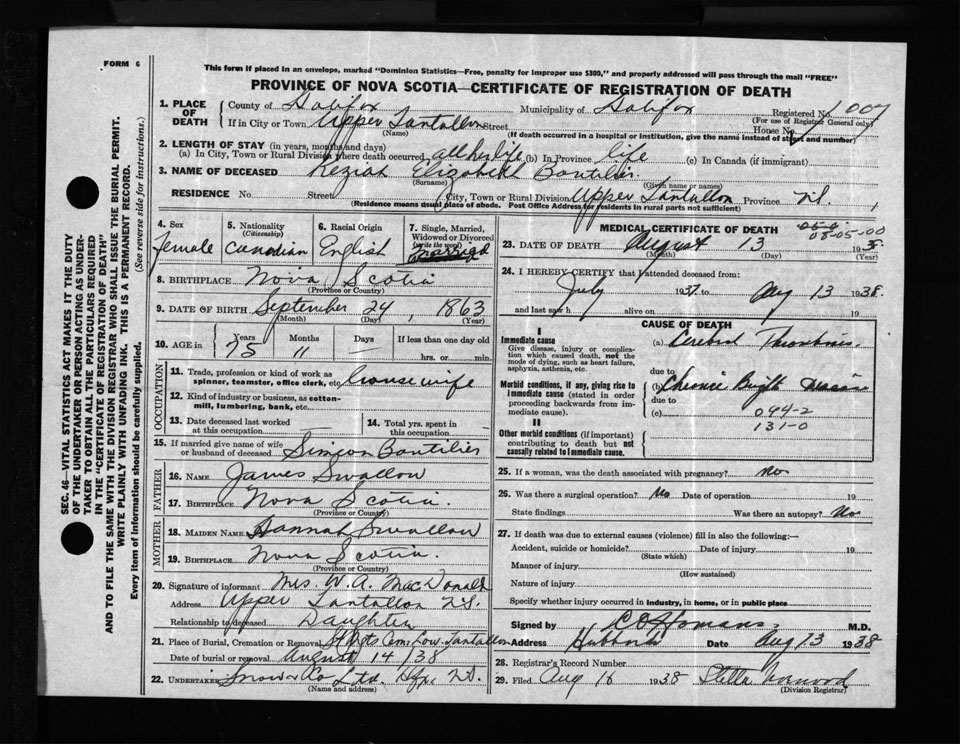 FORM 6
This form if placed in an envelope, marked "Dominion Statistics—Free, penalty for improper use $300," and properly addressed will pass through the mail "FREE"
PROVINCE OF NOVA SCOTIA—CERTIFICATE OF REGISTRATION OF DEATH
1. PLACE OF DEATH
County of Halifax Municipality of Halifax Registered No.
(For use of Registrar General only)
If in City or Town Upper Tantallon Street House No.
(Name) (If death occurred in a hospital or institution, give the name instead of street and number)
2. LENGTH OF STAY (in years, months and days)
(a) In City, Town or Rural Division where death occurred all her life (b) In Province life (c) In Canada (if immigrant)
3. NAME OF DECEASED Keziah Elizabeth Boutilier
(Surname) (Given name or names)
RESIDENCE No. Street City, Town or Rural Division Upper Tantallon Province N.S.
(Residence means usual place of abode. Post Office Address for residents in rural parts not sufficient)
4. Sex Female
5. Nationality (Citizenship) Canadian
6. Racial Origin English
7. Single, Married, Widowed or Divorced (write the word) married
8. BIRTHPLACE Nova Scotia
(Province or Country)
9. DATE OF BIRTH September 24, 1863
(Month) (Day) (Year)
10. AGE in Years Months Days If less than one day old
75 11 — hrs. or min.
OCCUPATION
11. Trade, profession or kind of work as spinner, teamster, office clerk, etc. housewife
12. Kind of industry or business, as cotton-mill, lumbering, bank, etc.
13. Date deceased last worked at this occupation
14. Total yrs. spent in this occupation
15. If married give name of wife or husband of deceased Simeon Boutilier
FATHER
16. NAME James Swallow
17. BIRTHPLACE Nova Scotia
(Province or Country)
MOTHER
18. MAIDEN NAME Hannah Swallow
19. BIRTHPLACE Nova Scotia
(Province or Country)
20. Signature of informant Mrs. W. A. MacDonald
Address Upper Tantallon N.S.
Relationship to deceased Daughter
21. Place of Burial, Cremation or Removal Cem. Tantallon
Date of burial or removal August 14/38
22. UNDERTAKER Snow & Co Ltd. Hfx N.S.
(Name and address)
MEDICAL CERTIFICATE OF DEATH
08-05-00
23. DATE OF DEATH August 13 193
(Month) (Day) (Year)
24. I HEREBY CERTIFY that I attended deceased from:
July 1937 to Aug 13 1938.
and last saw h alive on 19
CAUSE OF DEATH
I
Immediate cause
Give disease, injury or complication which caused death, not the mode of dying, such as heart failure, asphyxia, asthenia, etc.
(a) Cerebral Thrombosis
due to
Morbid conditions, if any, giving rise to immediate cause (stated in order proceeding backwards from immediate cause).
(b) Chronic Bright Disease
due to
(c) 094-2
131-0
II
Other morbid conditions (if important) contributing to death but not causally related to immediate cause.
25. If a woman, was the death associated with pregnancy? No
26. Was there a surgical operation? No Date of operation 19
State findings Was there an autopsy? No
27. If death was due to external causes (violence) fill in also the following:—
Accident, suicide or homicide? Date of injury 19
(State which)
Manner of injury
(How sustained)
Nature of injury
Specify whether injury occurred in industry, in home, or in public place
Signed by M.D.
Address Hubbards Date Aug 13 1938
28. Registrar's Record Number
29. Filed Aug 16 1938 Stella
(Division Registrar)
SEC. 46—VITAL STATISTICS ACT MAKES IT THE DUTY OF THE UNDERTAKER OR PERSON ACTING AS UNDERTAKER TO OBTAIN ALL THE PARTICULARS REQUIRED IN THE "CERTIFICATE OF REGISTRATION OF DEATH"
AND TO FILE THE SAME WITH THE DIVISION REGISTRAR WHO SHALL ISSUE THE BURIAL PERMIT.
WRITE PLAINLY WITH UNFADING INK. THIS IS A PERMANENT RECORD.
Every item of information should be carefully supplied. (See reverse side for instructions.)